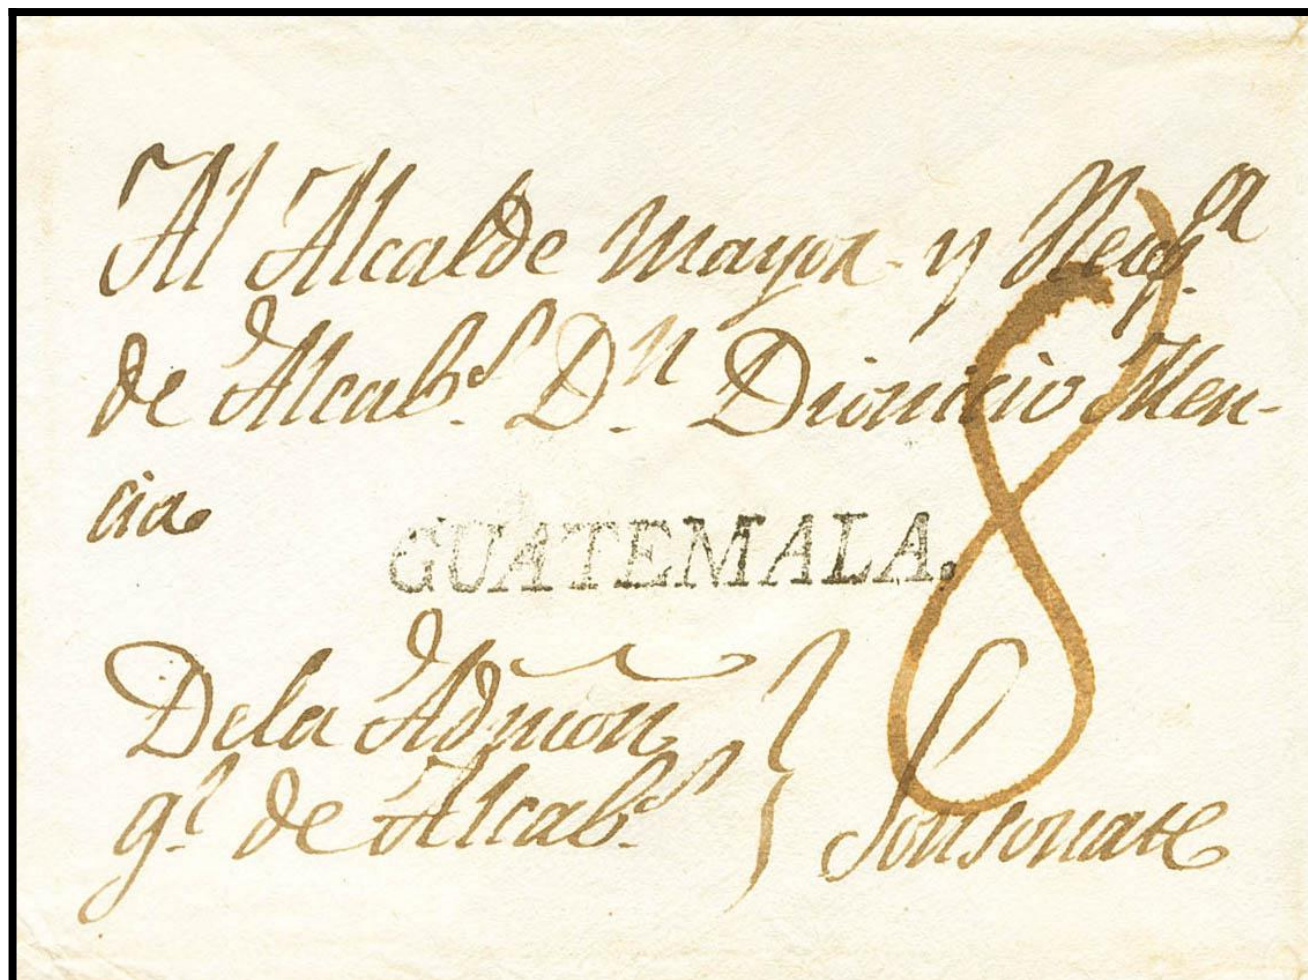 Al Alcalde Mayor y Recep.or
de Alcab.s D.n Dionicio Men-
cia
GUATEMALA.
8
De la Admon
g.l de Alcab.s } Sonsonate